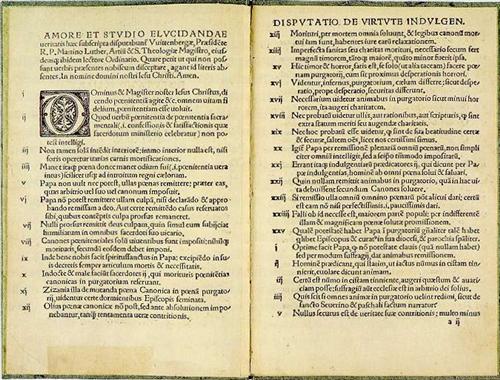 AMORE ET STVDIO ELVCIDANDAE
ueritatis hæc subscripta disputabunť Vuittenbergæ, Præsidēte
R. P. Martino Luther, Artiū & S. Theologiæ Magistro, eius-
demq; ibidem lectore Ordinario. Quare petit ut qui non pos-
sunt uerbis præsentes nobiscum disceptare, agant id literis ab-
sentes. In nomine domini nostri Iesu Christi. Amen.
i Ominus & Magister noster Iesus Christus, di-
cendo pœnitentiā agite &c. omnem uitam fi-
delium, pœnitentiam esse uoluit.
ij Quod uerbū pœnitentia de pœnitentia sacra-
mentali, (i. confessionis & satisfactionis quæ
sacerdotum ministerio celebratur) non po-
test intelligi.
iij Non tamen solā intēdit interiorē: immo interior nulla est, ni-
si foris operetur uarias carnis mortificationes.
iiij Manet itaq; pœna donec manet odium sui, (.i. pœnitentia ue-
ra intus) scilicet usq; ad introitum regni cælorum.
v Papa non uult nec potest, ullas pœnas remittere: præter eas,
quas arbitrio uel suo uel canonum imposuit.
vj Papa nō potest remittere ullam culpā, nisi declarādo & appro-
bando remissam a deo. Aut certe remittēdo casus reseruatos
sibi, quibus contēptis culpa prorsus remaneret.
vij Nulli prorsus remittit deus culpam, quin simul eum subijciat
humiliatum in omnibus sacerdoti suo uicario.
viij Canones pœnitentiales solū uiuentibus sunt impositi: nihilq;
morituris, secundū eosdem debet imponi.
ix Inde bene nobis facit spiritussanctus in Papa: excipiēdo in su-
is decretis semper articulum mortis & necessitatis.
x Indocte & male faciūt sacerdotes ij, qui morituris pœnitētias
canonicas in purgatorium reseruant.
xj Zizania illa de mutanda pœna Canonica in pœnā purgato-
rij, uidentur certe dormientibus Episcopis seminata.
xij Olim pœnæ canonicæ nō post, sed ante absolutionem impo-
nebantur, tanq̄ tentamenta ueræ contritionis.
DISPVTATIO DE VIRTVTE INDVLGEN.
xiij Morituri, per mortem omnia soluunt, & legibus canonū mor-
tui iam sunt, habentes iure earū relaxationem.
xiiij Imperfecta sanitas seu charitas morituri, necessario secum fert
magnū timorem, tātoq; maiorē, quāto minor fuerit ipsa.
xv Hic timor & horror, satis est, se solo (ut alia taceam) facere pœ-
nam purgatorij, cum sit proximus desperationis horrori.
xvj Videntur, infernus, purgatorium, cælum differre: sicut despe-
ratio, prope desperatio, securitas differunt.
xvij Necessarium uidetur animabus in purgatorio sicut minui hor-
rorem, ita augeri charitatem.
xviij Nec probatū uidetur ullis, aut rationibus, aut scripturis, q̄ sint
extra statum meriti seu augendæ charitatis.
xix Nec hoc probatū esse uidetur, q̄ sint de sua beatitudine certæ
& securæ, saltem oēs, licet nos certissimi simus.
xx Igiť Papa per remissionē plenariā omniū pœnarū, non simpli-
citer omniū intelligit, sed a seipso tātummodo impositarū.
xxj Errant itaq; indulgentiarū prædicatores ij, qui dicunt per Pa-
pæ indulgentias, hominē ab omni pœna solui & saluari.
xxij Quin nullam remittit animabus in purgatorio, quā in hac ui-
ta debuissent secundum Canones soluere.
xxiij Si remissio ulla omniū omnino pœnarū pōt alicui dari: certū
est eam nō nisi perfectissimis, i. paucissimis dari.
xxiiij Falli ob id necesse est, maiorem partē populi: per indifferentē
illam & magnificam pœnæ solutæ promissionem.
xxv Qualē potestatē habet Papa in purgatoriū gñaliter talē habet
quilibet Episcopus & curat⁹ in sua diocesi, & parochia spāliter.
i Optime facit Papa, q̄ nō potestate clauis (quā nullam habet)
sed per modum suffragij, dat animabus remissionem.
ij Hominē prædicant, qui statim, ut iactus nūmus in cistam tin-
nierit, euolare dicunt animam.
iij Certū est nūmo in cistam tinniente, augeri quæstum & auari-
ciam posse: suffragiū aūt ecclesiæ est in arbitrio dei solius.
iiij Quis scit si omnes animæ in purgatorio uelint redimi, sicut de
sancto Seuerino & paschali factum narratur.
v Nullus securus est de ueritate suæ contritionis: multo minus
a ij